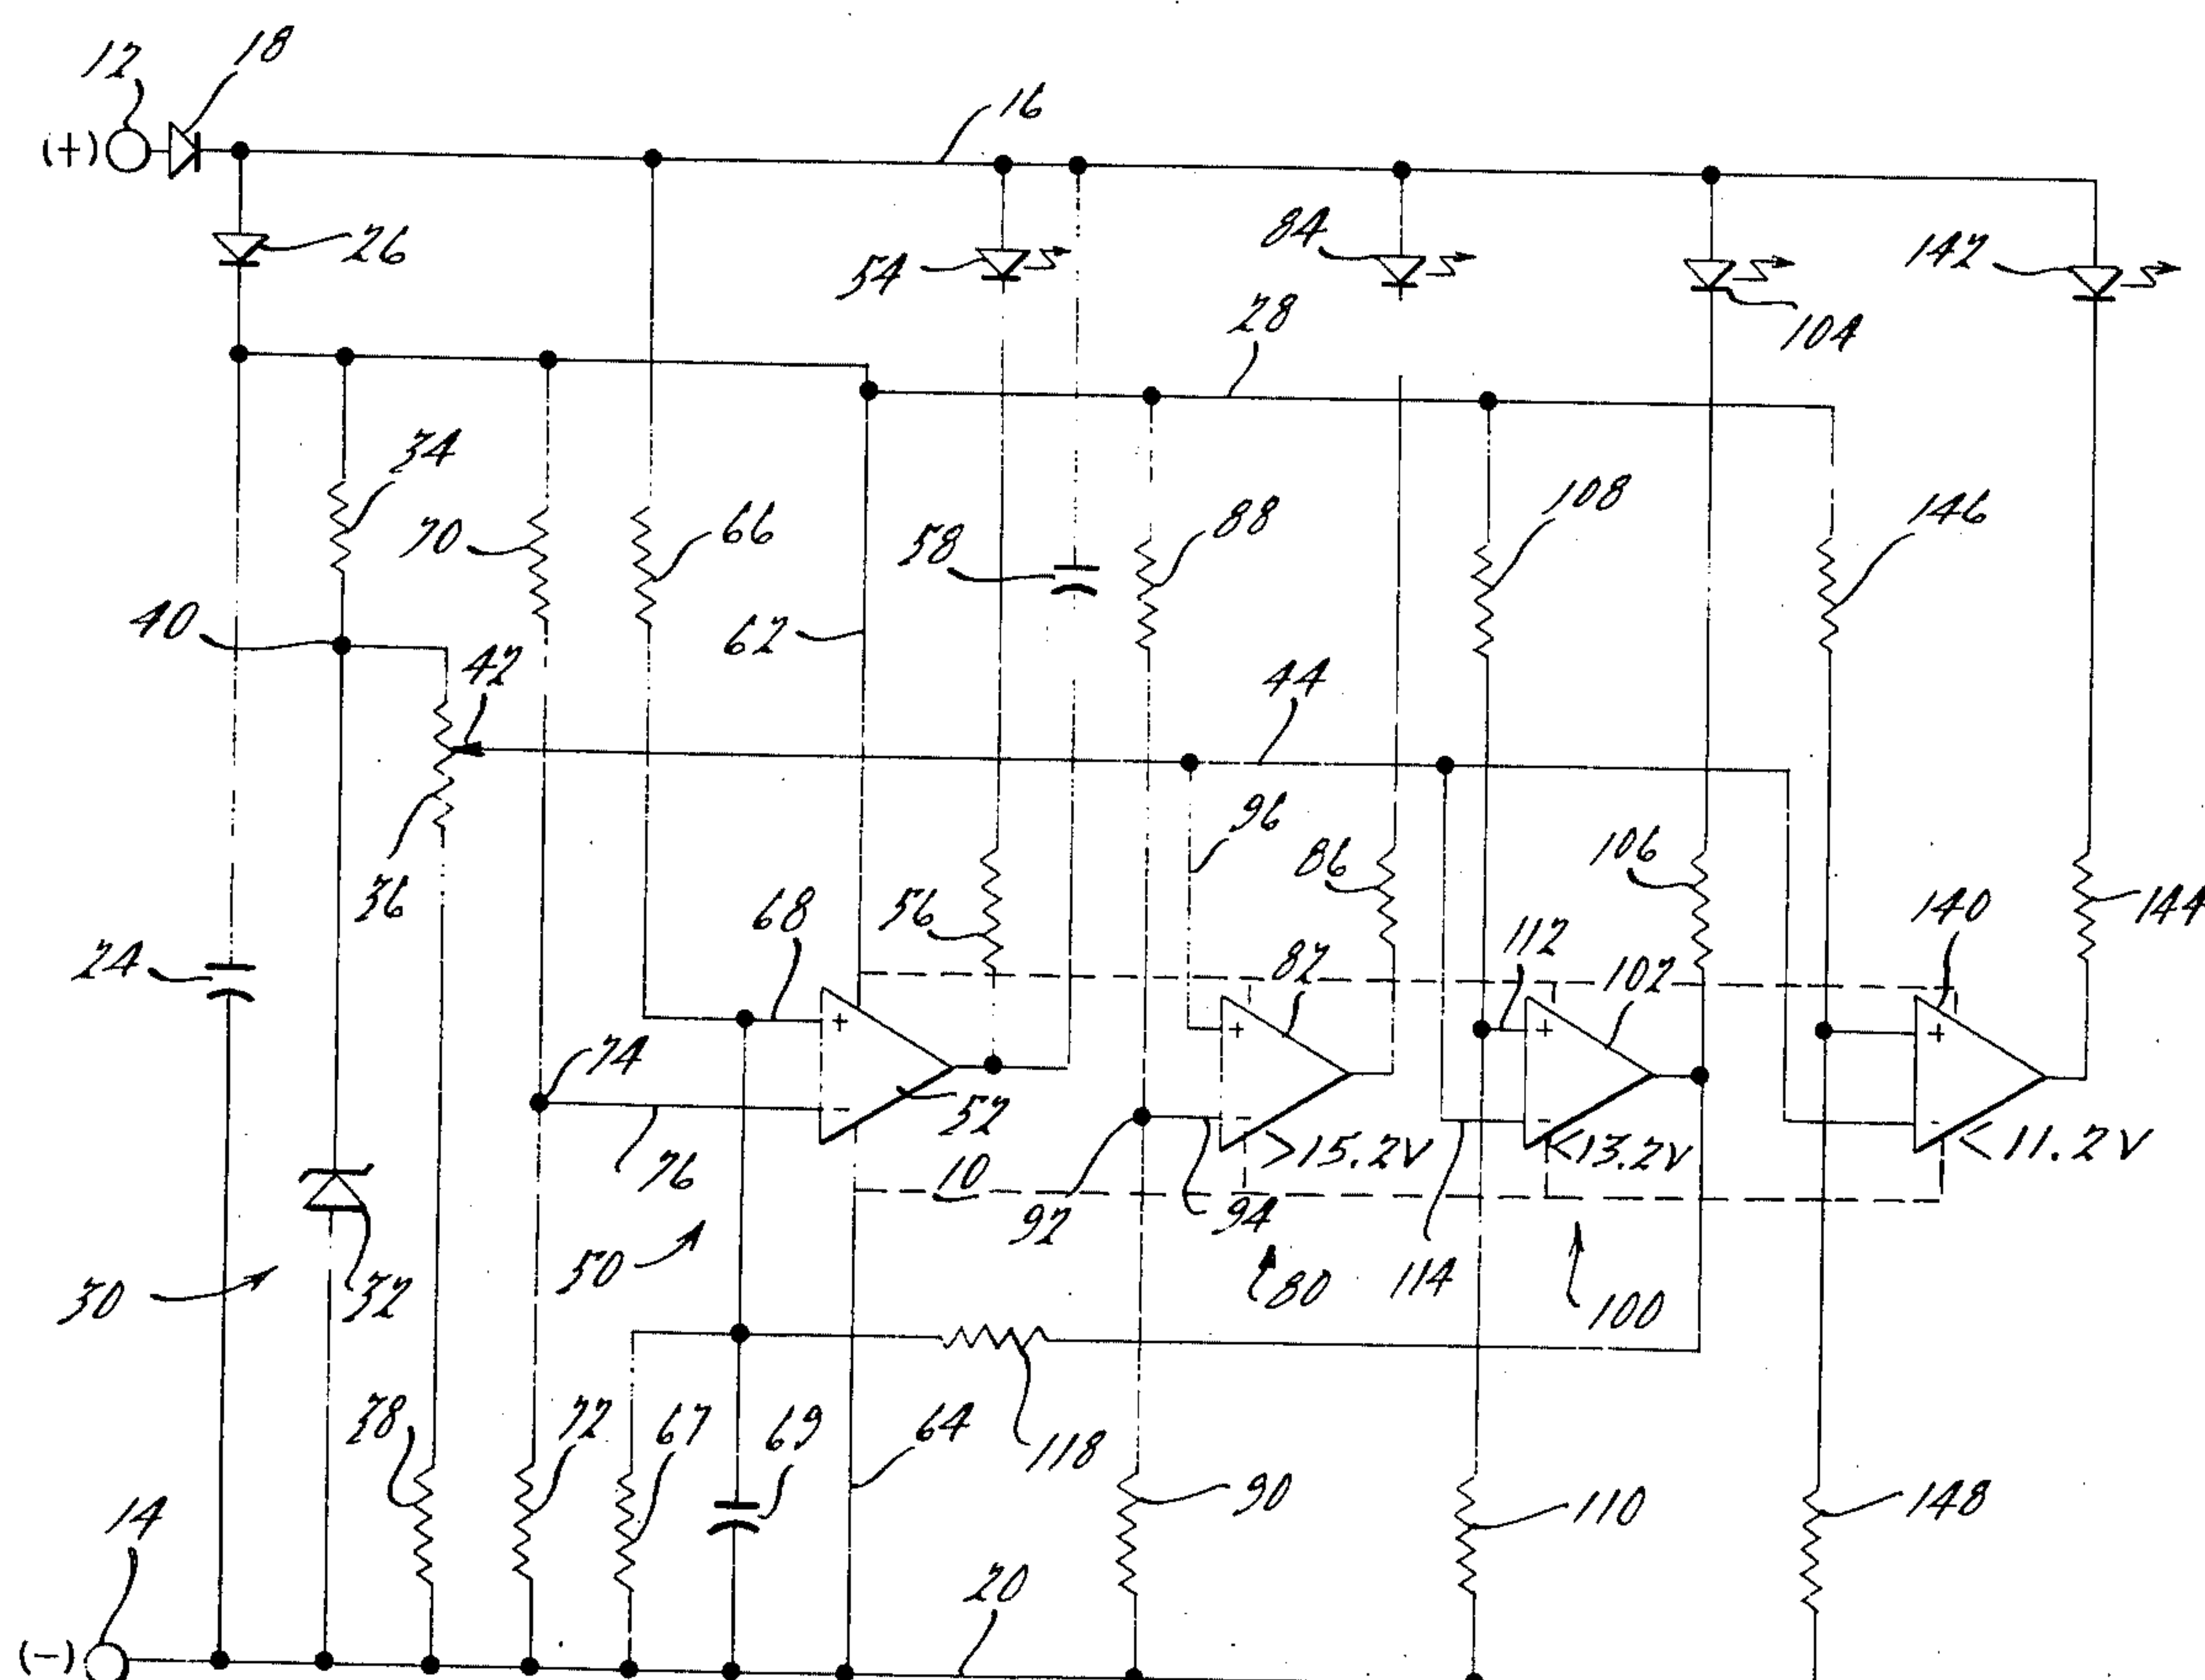 12
18
16
(+)
26
54
84
142
104
28
34
70
66
58
88
108
146
40
62
42
44
36
96
86
106
24
68
56
112
140
144
82
102
74
+
+
+
+
-
-
-
-
52
76
10
>15.2V
<13.2V
<11.2V
92
94
114
30
32
50
80
100
38
72
67
69
64
118
90
110
148
14
20
(-)